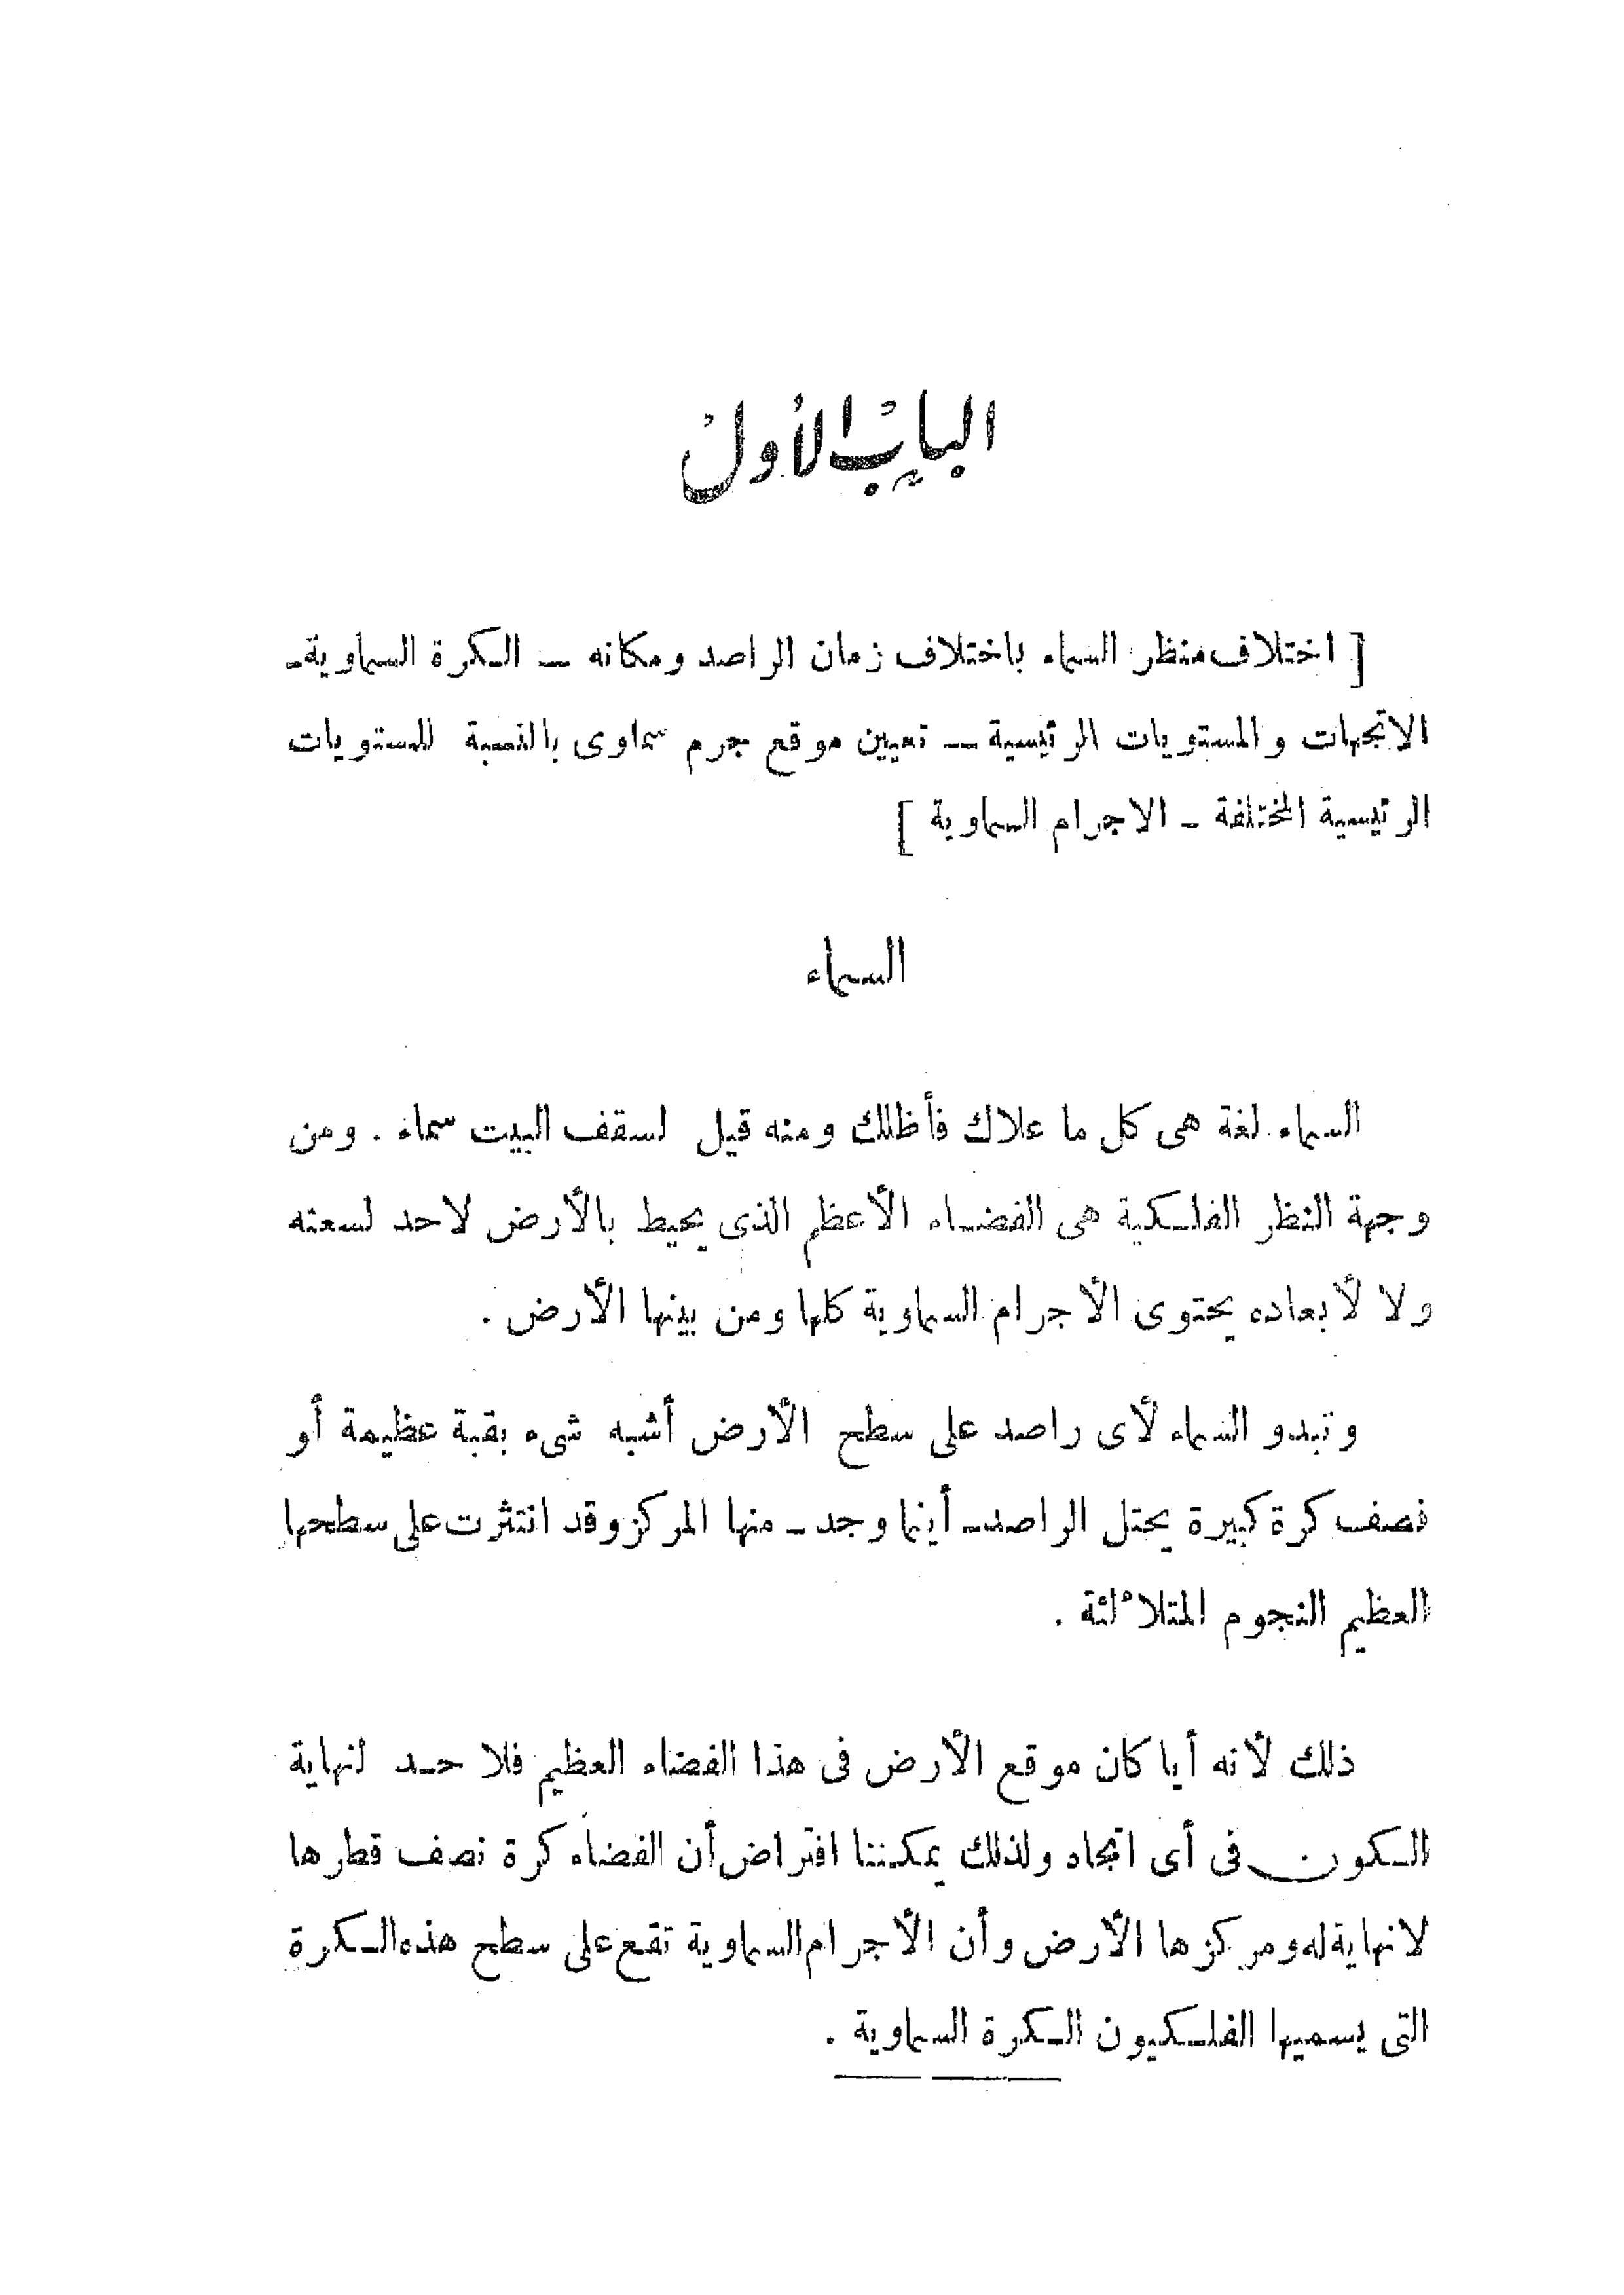 الباب الأول
[ اختلاف منظر السماء باختلاف زمان الراصد ومكانه – الكرة السماوية –
الاتجهات والمستويات الرئيسية – تعيين موقع جرم سماوى بالنسبة للمستويات
الرئيسية المختلفة – الاجرام السماوية ]
السماء
السماء لغة هى كل ما علاك فأظلك ومنه قيل لسقف البيت سماء . ومن
وجهة النظر الفلكية هى الفضاء الأعظم الذى يحيط بالأرض لا حد لسعته
ولا لأبعاده يحتوى الأجرام السماوية كلها ومن بينها الأرض .
وتبدو السماء لأى راصد على سطح الأرض أشبه شىء بقبة عظيمة أو
نصف كرة كبيرة يحتل الراصد – أينما وجد – منها المركز وقد انتثرت على سطحها
العظيم النجوم المتلألئة .
ذلك لأنه أيا كان موقع الأرض فى هذا الفضاء العظيم فلا حد لنهاية
الكون فى أى اتجاه ولذلك يمكننا افتراض أن الفضاء كرة نصف قطرها
لا نهاية له ومركزها الأرض وأن الأجرام السماوية تقع على سطح هذه الكرة
التى يسميها الفلكيون الكرة السماوية .